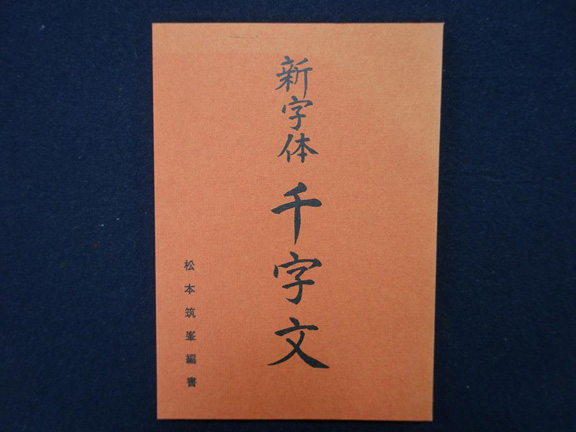 新字体 千字文
松本筑峯編書